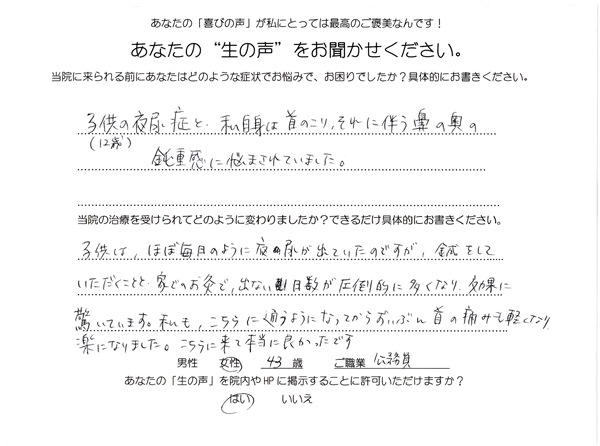 あなたの「喜びの声」が私にとっては最高のご褒美なんです！
あなたの“生の声”をお聞かせください。
当院に来られる前にあなたはどのような症状でお悩みで、お困りでしたか？具体的にお書きください。
子供の夜尿症と、私自身は首のこり、それに伴う鼻の奥の
(12歳)
鈍重感に悩まされていました。
当院の治療を受けられてどのように変わりましたか？できるだけ具体的にお書きください。
子供は、ほぼ毎日のように夜の尿が出ていたのですが、鍼をして
いただくことと、家でのお灸で、出ない日数が圧倒的に多くなり、効果に
驚いています。私も、こちらに通うようになってからずいぶん首の痛みも軽くなり
楽になりました。こちらに来て本当に良かったです
男性 女性 43 歳 ご職業 公務員
あなたの「生の声」を院内やHPに掲示することに許可いただけますか？
はい いいえ